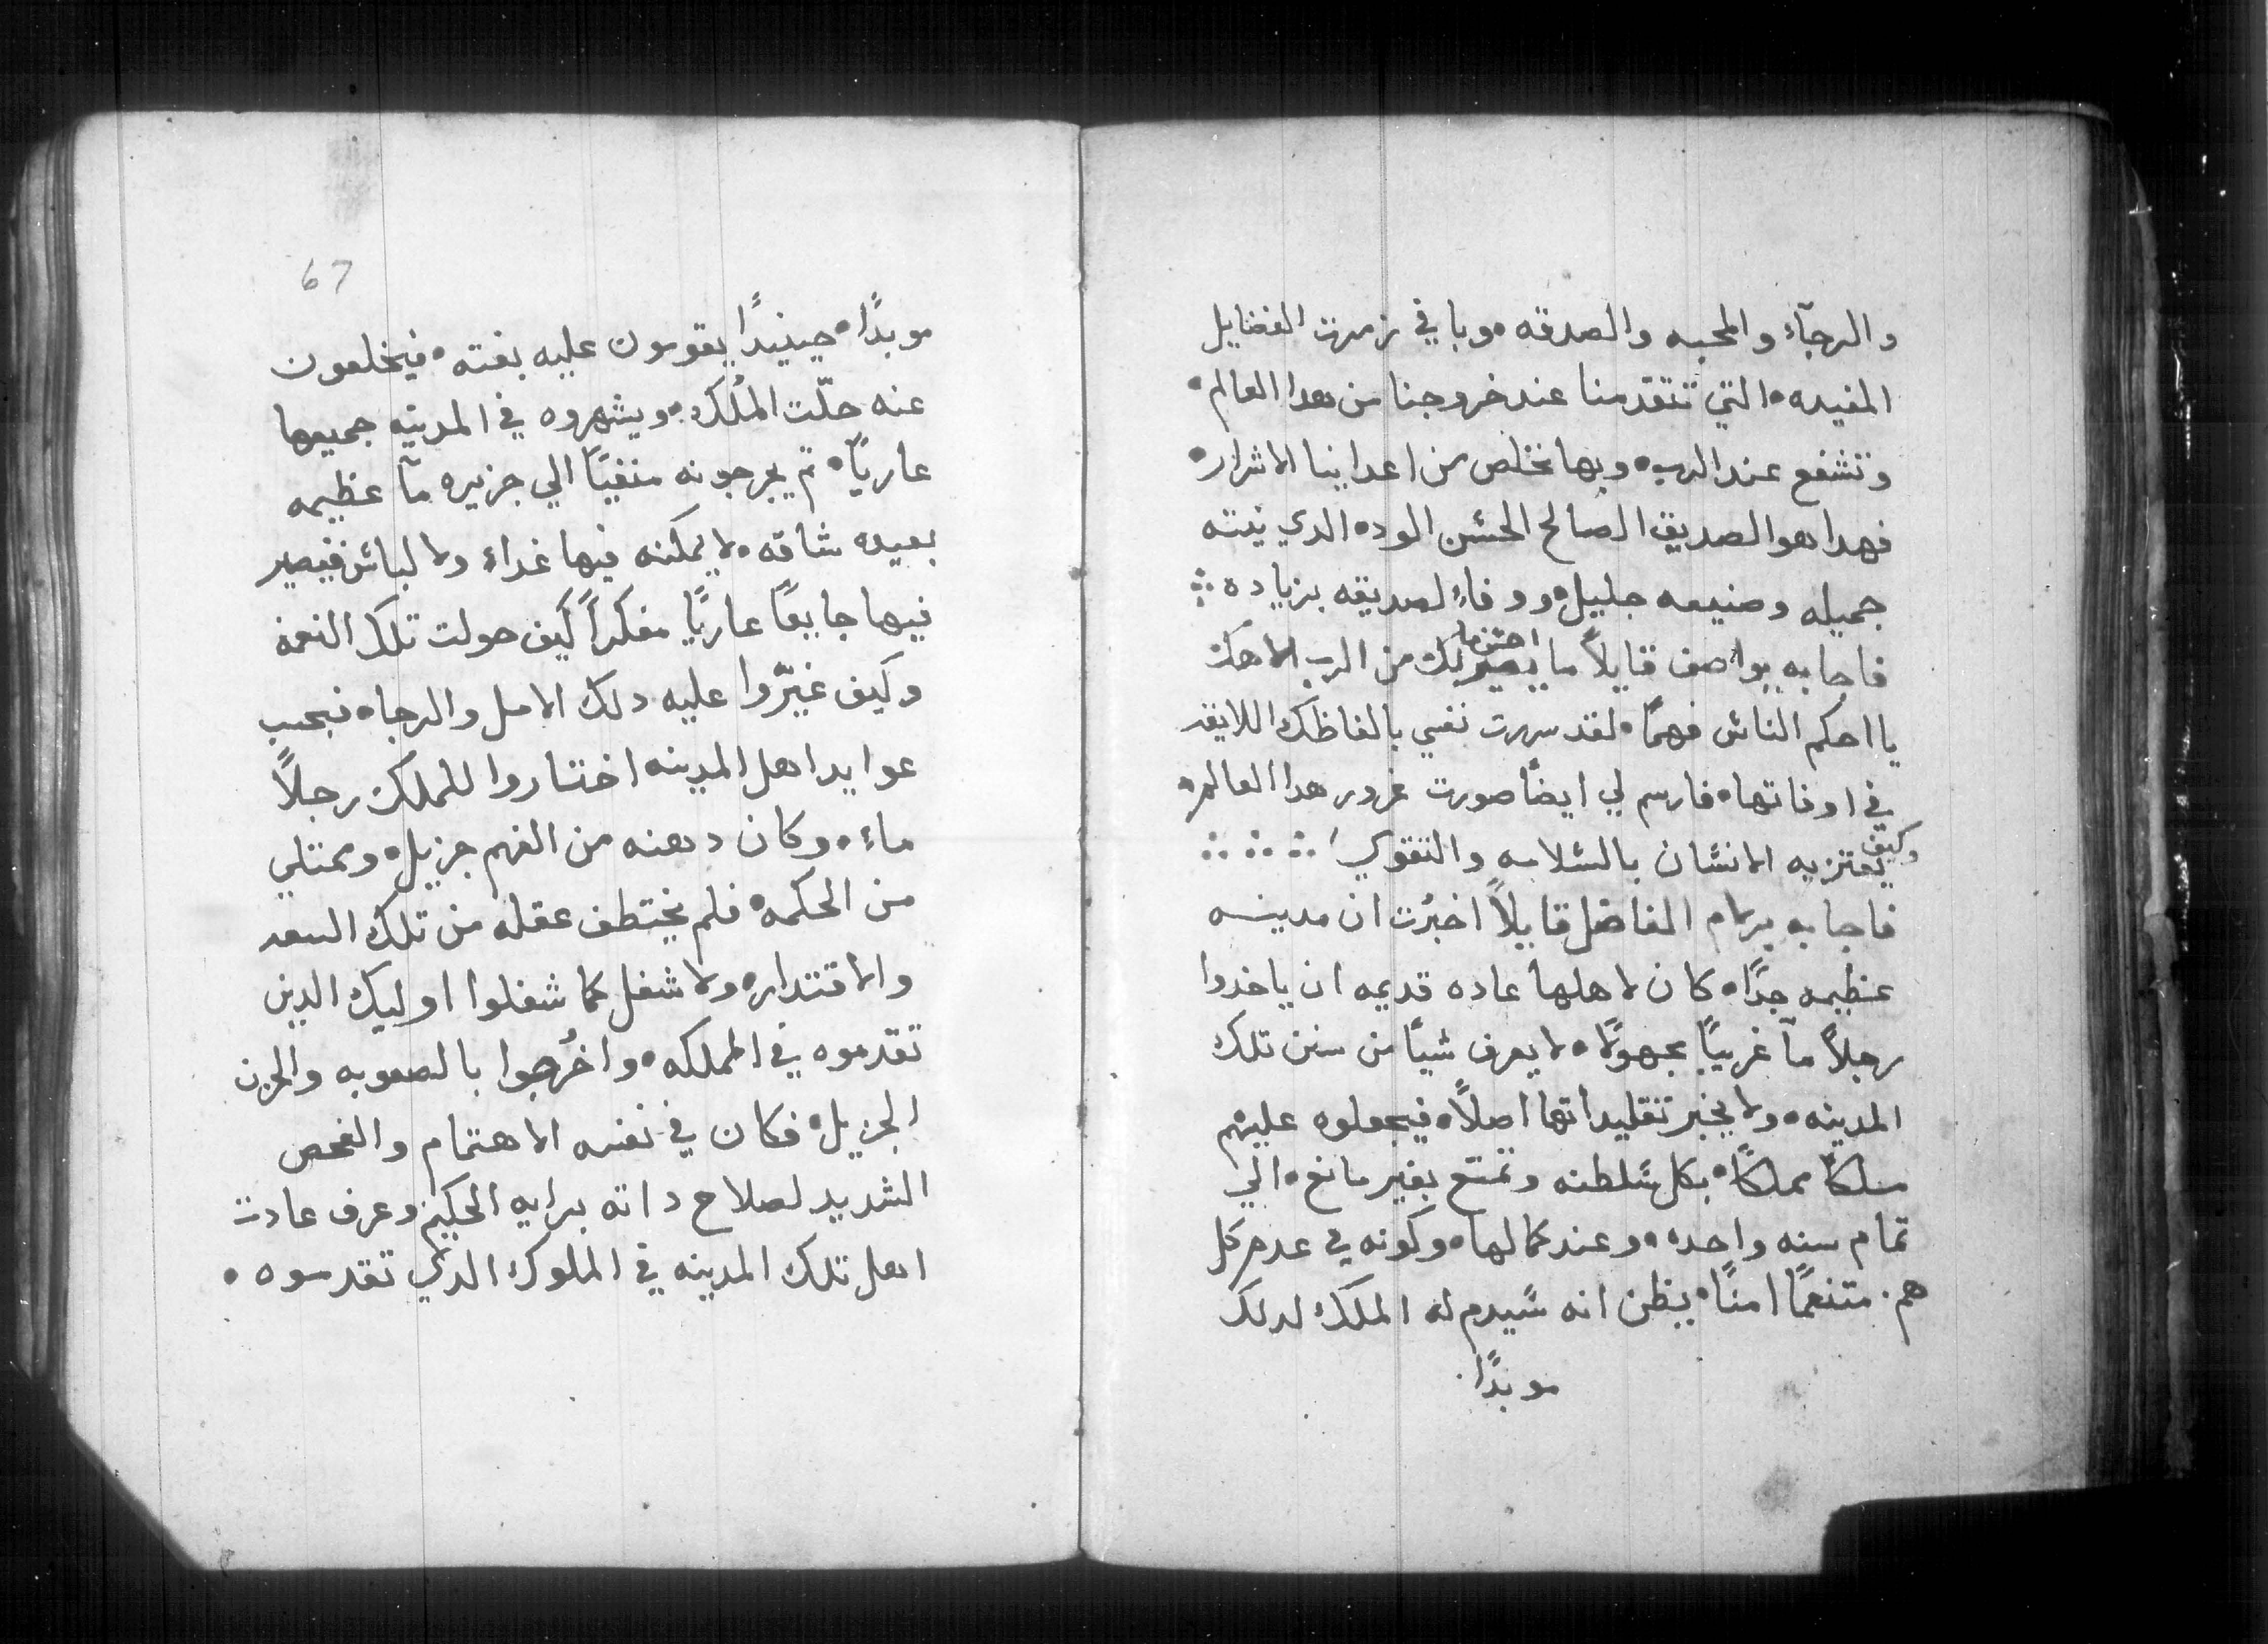 والرجآء والمحبه والصدقه • وباقي زمرت الفضايل
المفيده • التي تتقدمنا عند خروجنا من هدا العالم •
وتشفع عند الرب • وبها نخلص من اعداينا الاشرار •
فهدا هو الصديق الصالح الحسن الوده الدي نيته
جميله وصنيعه جليل • ووفاءِ لصديقه بزياده ⁘
فاجابه يواصف قايلاً ما يصير لك من الرب الاهك
يا احكم الناس فهمًا • لقد سررت نفسي بالفاظك اللايقه
في اوقاتها • فارسم لي ايضًا صورت غرور هدا العالم •
وكيف يعتزيه الانسان بالسلامه والتقوي ⁘ ⁘ ⁘
فاجابه برلام الفاضل قايلاً اخبرُت ان مدينه
عظيمه جدًا • كان لاهلها عاده قديمه ان ياخدوا
رجلاً مآ غريبًا مجهولًا • لا يعرف شيًا من سنن تلك
المدينه • ولا يخبر تقليداتها اصلاً • فيجعلوه عليهم
ملكًا مملكًا • بكل سلطنه وتمتع بغير مانع • الي
تمام سنه واحده • وعند كمالها • وكونه في عدم كل
هم • متنعمًا امنًا • يظن انه سيدم له الملك لدلك
موبدًا •
67
موبدًا • حينيدًا يقومون عليه بغته • فيخلعون
عنه حلّت المُلك • ويشهروه في المدينه جميعها
عاريًا • تم يخرجونه منفيًا الي جزيره مآ عظيمه
بعيده شاقه • لا يمكنه فيها غداء ولا لباس فيصير
فيها جايعًا عاريًا مفكراً كيف حولت تلك النعمه
وكيف غيّروا عليه دلك الامل والرجا • فبحسب
عوايد اهل المدينه اختاروا للملك رجلاً
ماءِ • وكان دهنه من الفهم جزيل • وممتلي
من الحكمه • فلم يختطف عقله من تلك السعد
والاقتدار • ولا شغل كما شغلوا اوليك الدين
تقدموه في المملكه • واخُرجوا بالصعوبه والحزن
الجزيل • فكان في نفسه الاهتمام والفحص
الشديد لصلاح داته برايه الحكيم وعرف عادت
اهل تلك المدينه في الملوك الدي تقدموه •